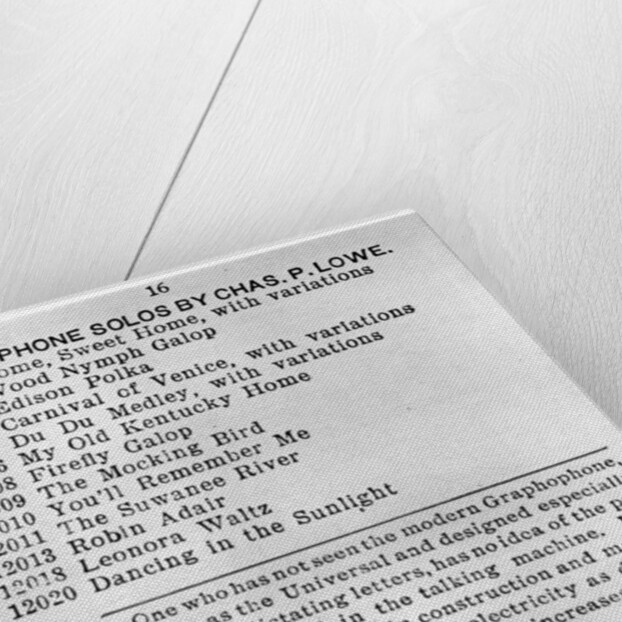 16
PHONE SOLOS BY CHAS. P. LOWE.
ome, Sweet Home, with variations
Wood Nymph Galop
Edison Polka
Carnival of Venice, with variations
Du Du Medley, with variations
My Old Kentucky Home
08 Firefly Galop
09 The Mocking Bird
010 You'll Remember Me
2011 The Suwanee River
2013 Robin Adair
12018 Leonora Waltz
12020 Dancing in the Sunlight
One who has not seen the modern Graphophone,
as the Universal and designed especiall
tating letters, has no idea of the p
in the talking machine.
construction and m
electricity as
increases